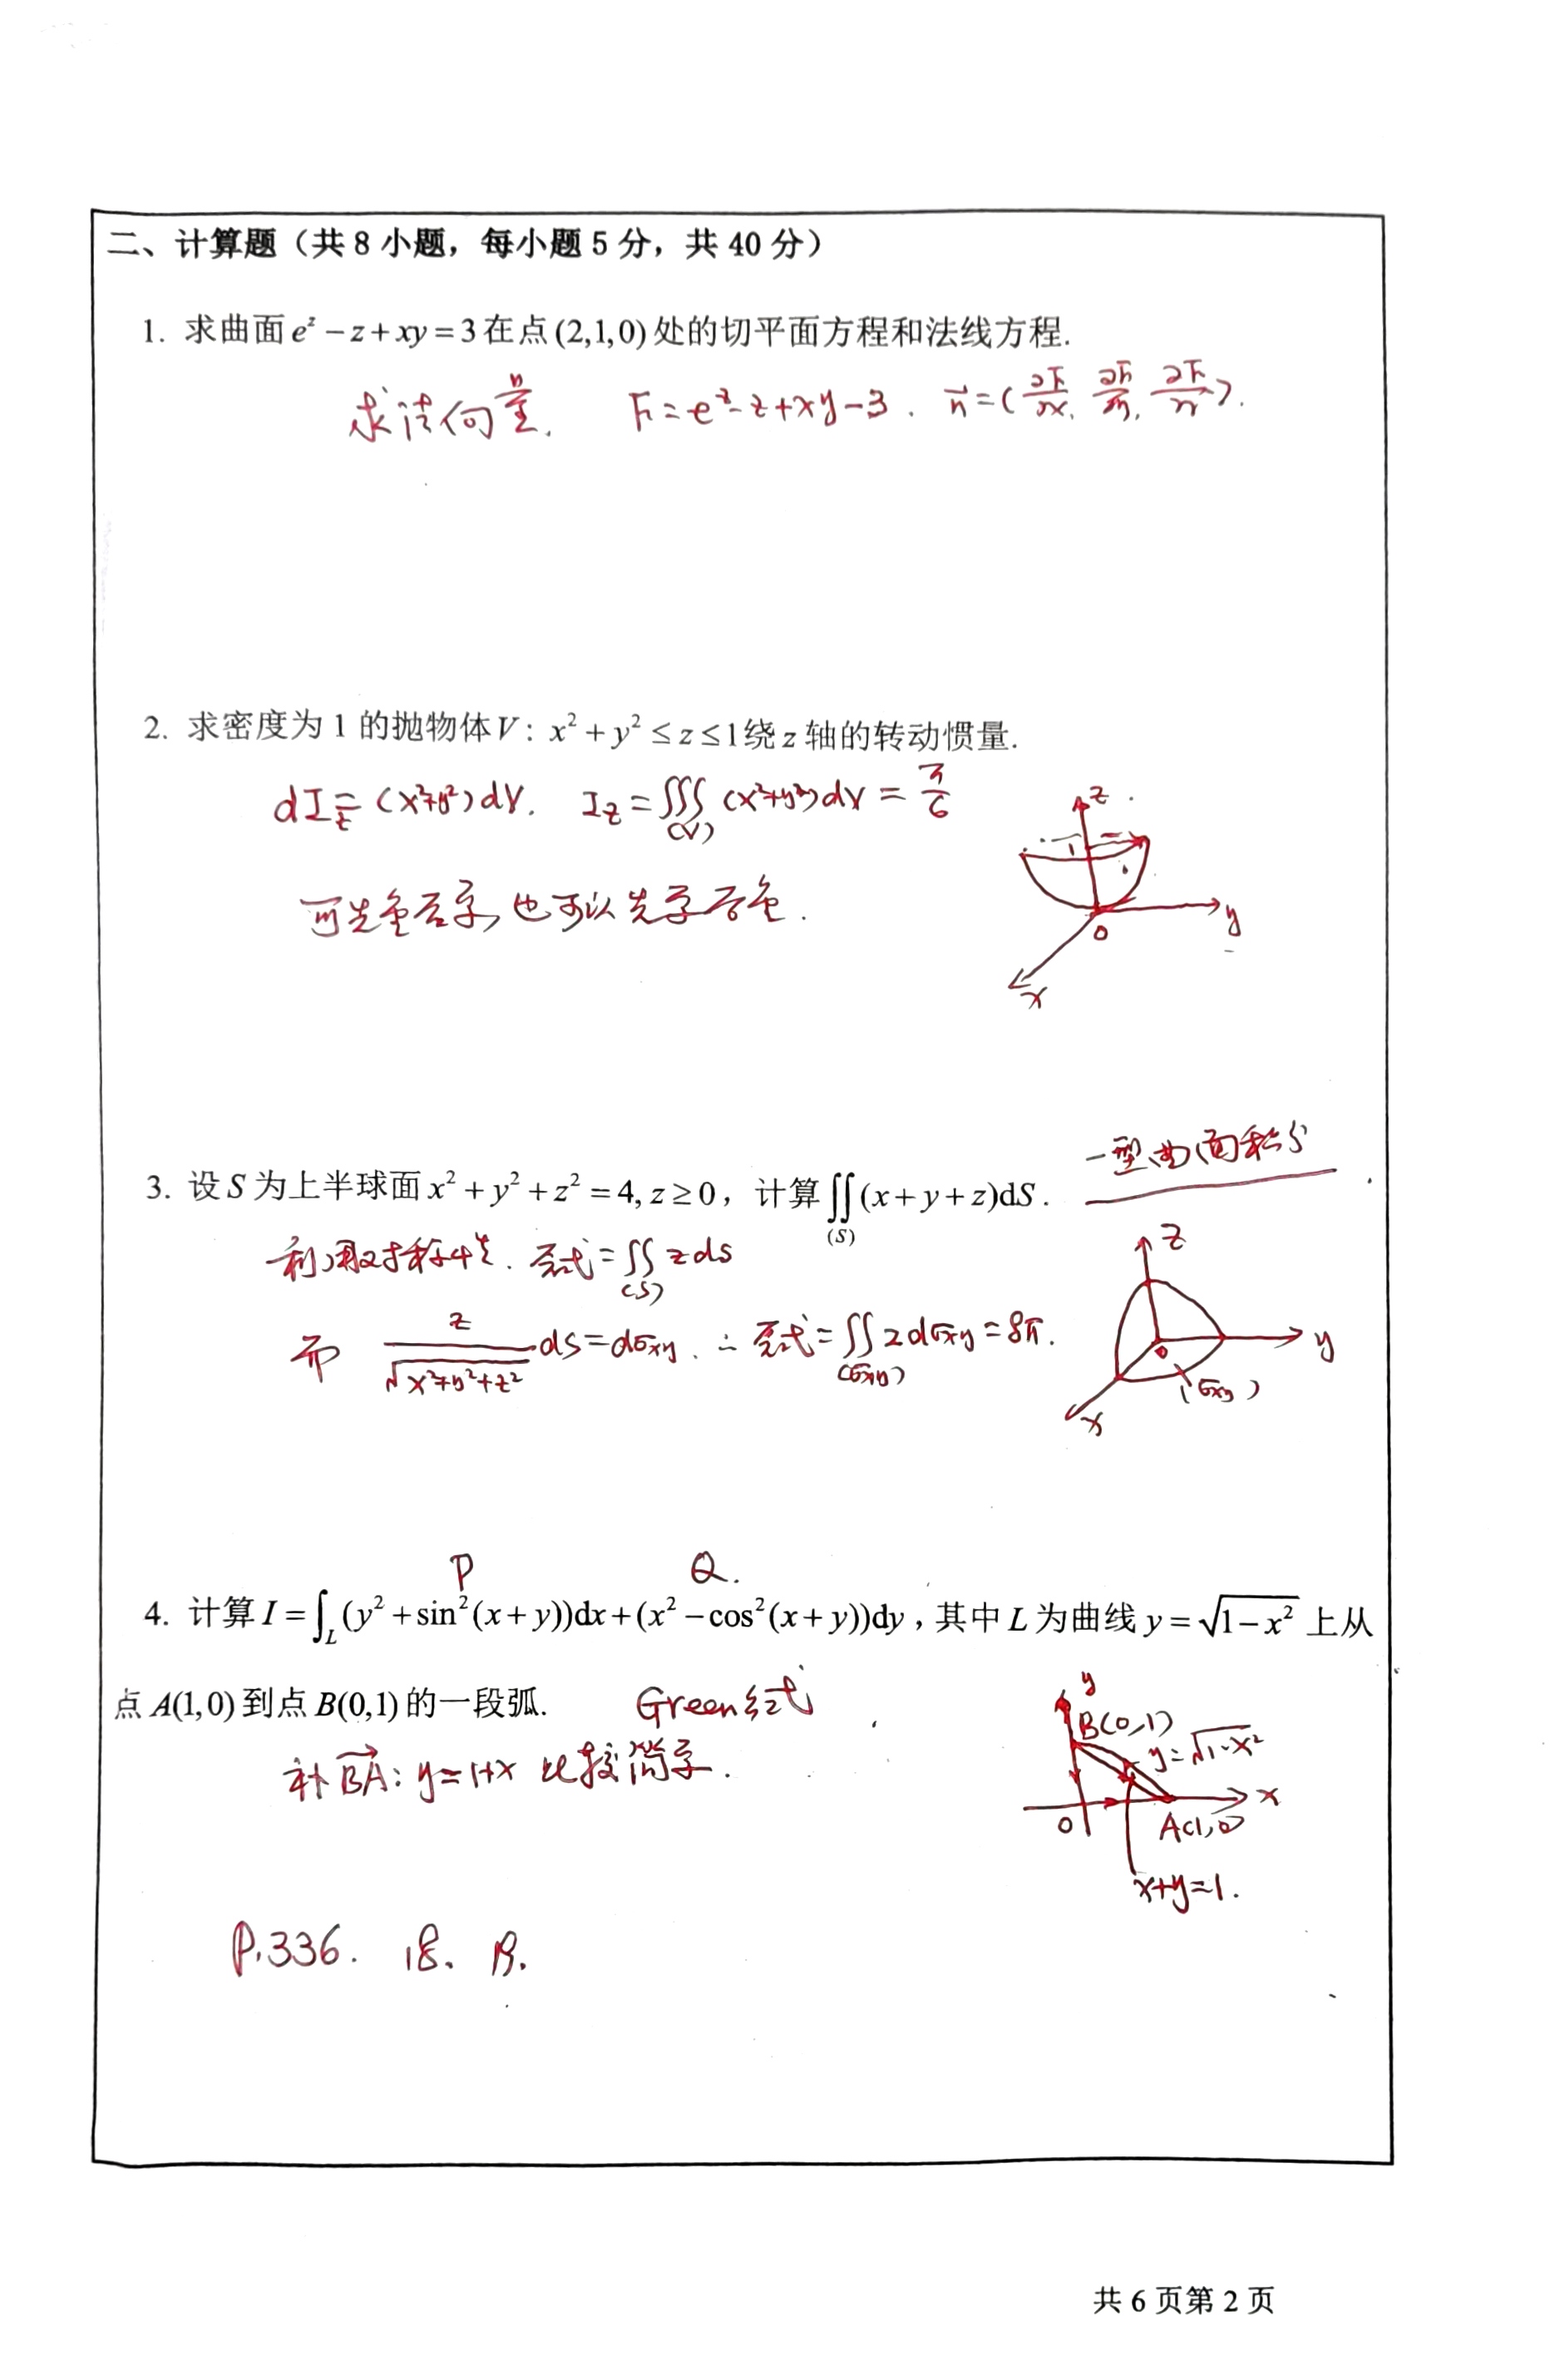 二、计算题（共 8 小题，每小题 5 分，共 40 分）
1. 求曲面 e^z − z + xy = 3 在点 (2,1,0) 处的切平面方程和法线方程.
求法向量. F = e^z - z + xy - 3 . n⃗ = (∂F/∂x, ∂F/∂y, ∂F/∂z).
2. 求密度为 1 的抛物体 V : x² + y² ≤ z ≤ 1 绕 z 轴的转动惯量.
dI_z = (x²+y²)dV. I_z = ∭_(V) (x²+y²)dV = π/6
z
1
可先重后单, 也可以先单后重.
y
O
x
一型曲面积分
3. 设 S 为上半球面 x² + y² + z² = 4, z ≥ 0，计算 ∬_(S) (x + y + z)dS .
利用对称性. 原式 = ∬_(S) z dS
z
而 z/√(x²+y²+z²) dS = dσxy . ∴ 原式 = ∬_(σxy) 2dσxy = 8π.
y
o
(σxy)
x
P Q.
4. 计算 I = ∫_L (y² + sin²(x + y))dx + (x² − cos²(x + y))dy，其中 L 为曲线 y = √(1 − x²) 上从
点 A(1,0) 到点 B(0,1) 的一段弧. Green公式
y
B(0,1)
y=√(1-x²)
补 BA⃗ : y = 1-x 比较简单.
x
O A(1,0)
x+y=1.
P.336. 18. B.
共 6 页第 2 页